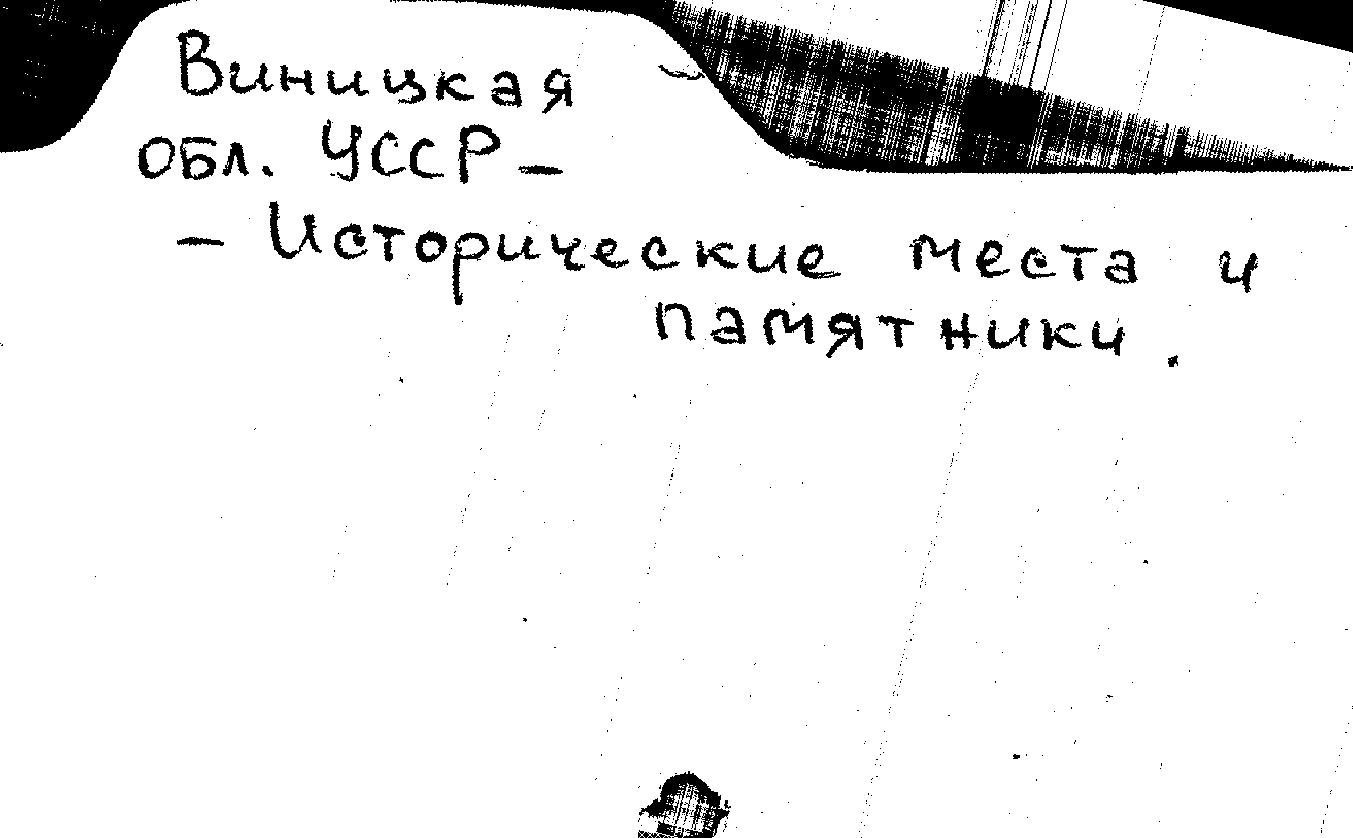 Виницкая
обл. УССР –
– Исторические места и
памятники.